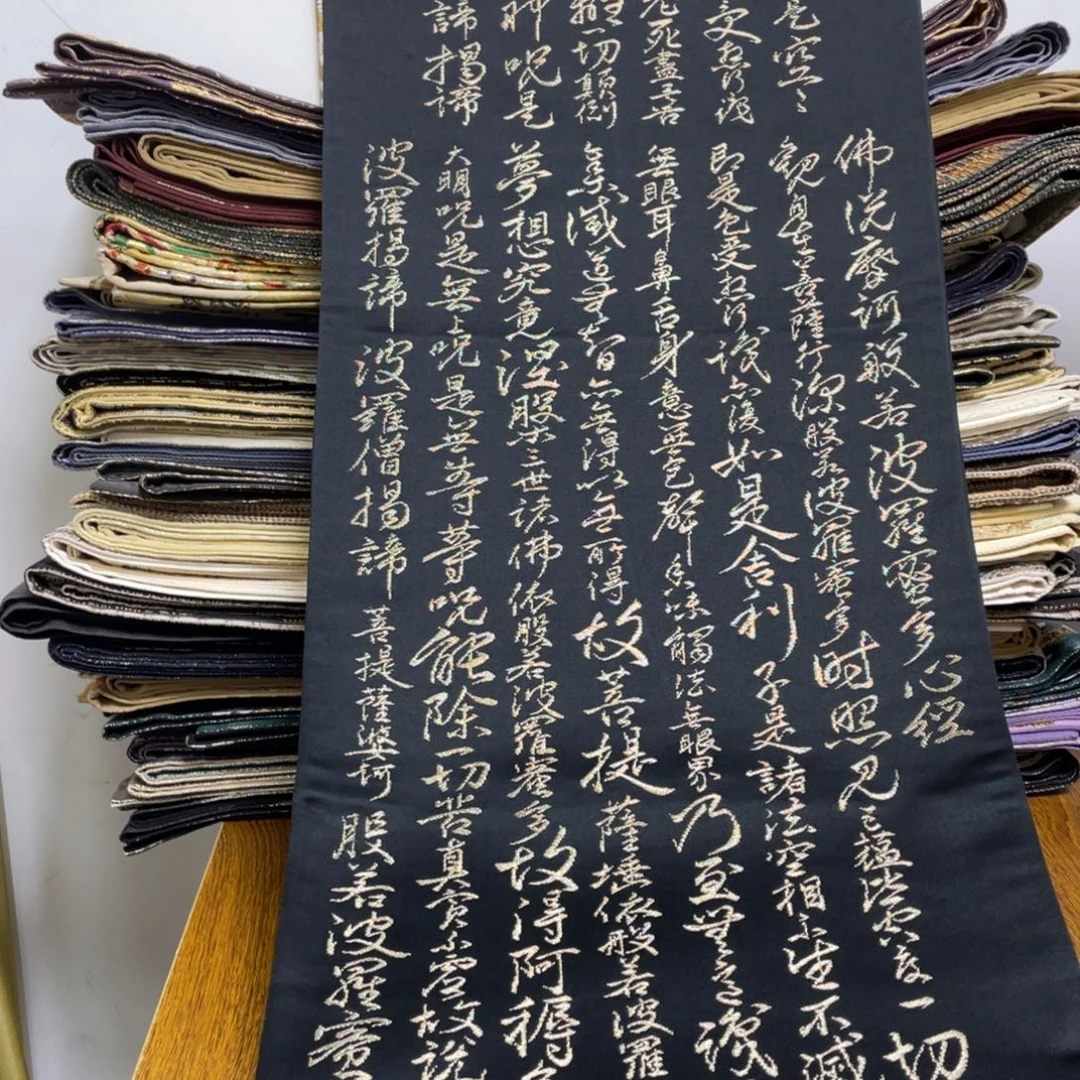 是空々
受想行識
老死盡無苦
一切顛倒
神呪是
諦揭諦
佛说摩訶般若波羅蜜多心經
觀自在菩薩行深般若波羅蜜多時照見五蘊皆空度一切
即是色受想行識亦復如是舍利子是諸法空相不生不滅
無眼耳鼻舌身意無色聲香味觸法無眼界乃至無意識
集滅道無智亦無得以無所得故菩提薩埵依般若波羅
夢想究竟涅槃三世諸佛依般若波羅蜜多故得阿耨多
大明呪是無上呪是無等等呪能除一切苦真實不虛故説
波羅揭諦 波羅僧揭諦 菩提薩婆訶 般若波羅蜜